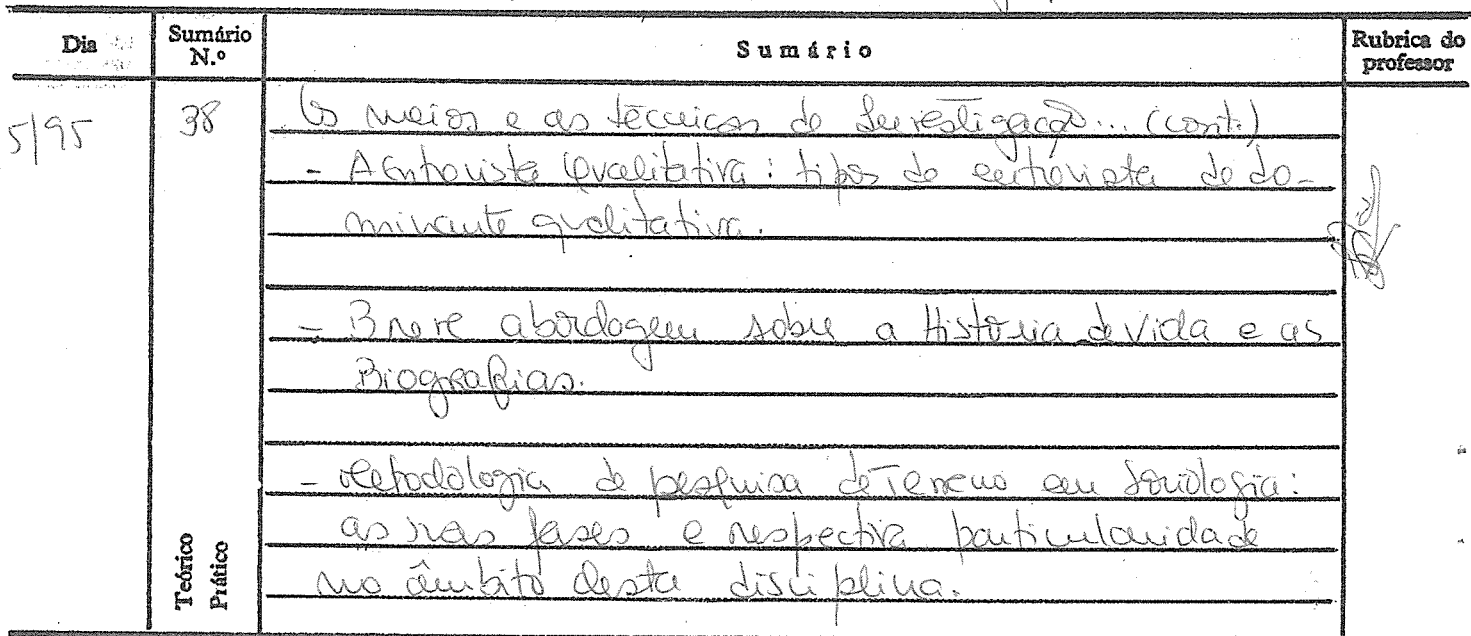 Dia Sumário N.º Sumário Rubrica do professor
5/95 38 Os meios e as técnicas de Investigação... (cont.)
- A Entrevista Qualitativa: tipos de entrevista de do-
minante qualitativa.
- Breve abordagem sobre a História de Vida e as
Biografias.
- Metodologia de pesquisa de Terreno em Sociologia:
as suas fases e respectiva particularidade
no âmbito desta disciplina.
Teórico
Prático